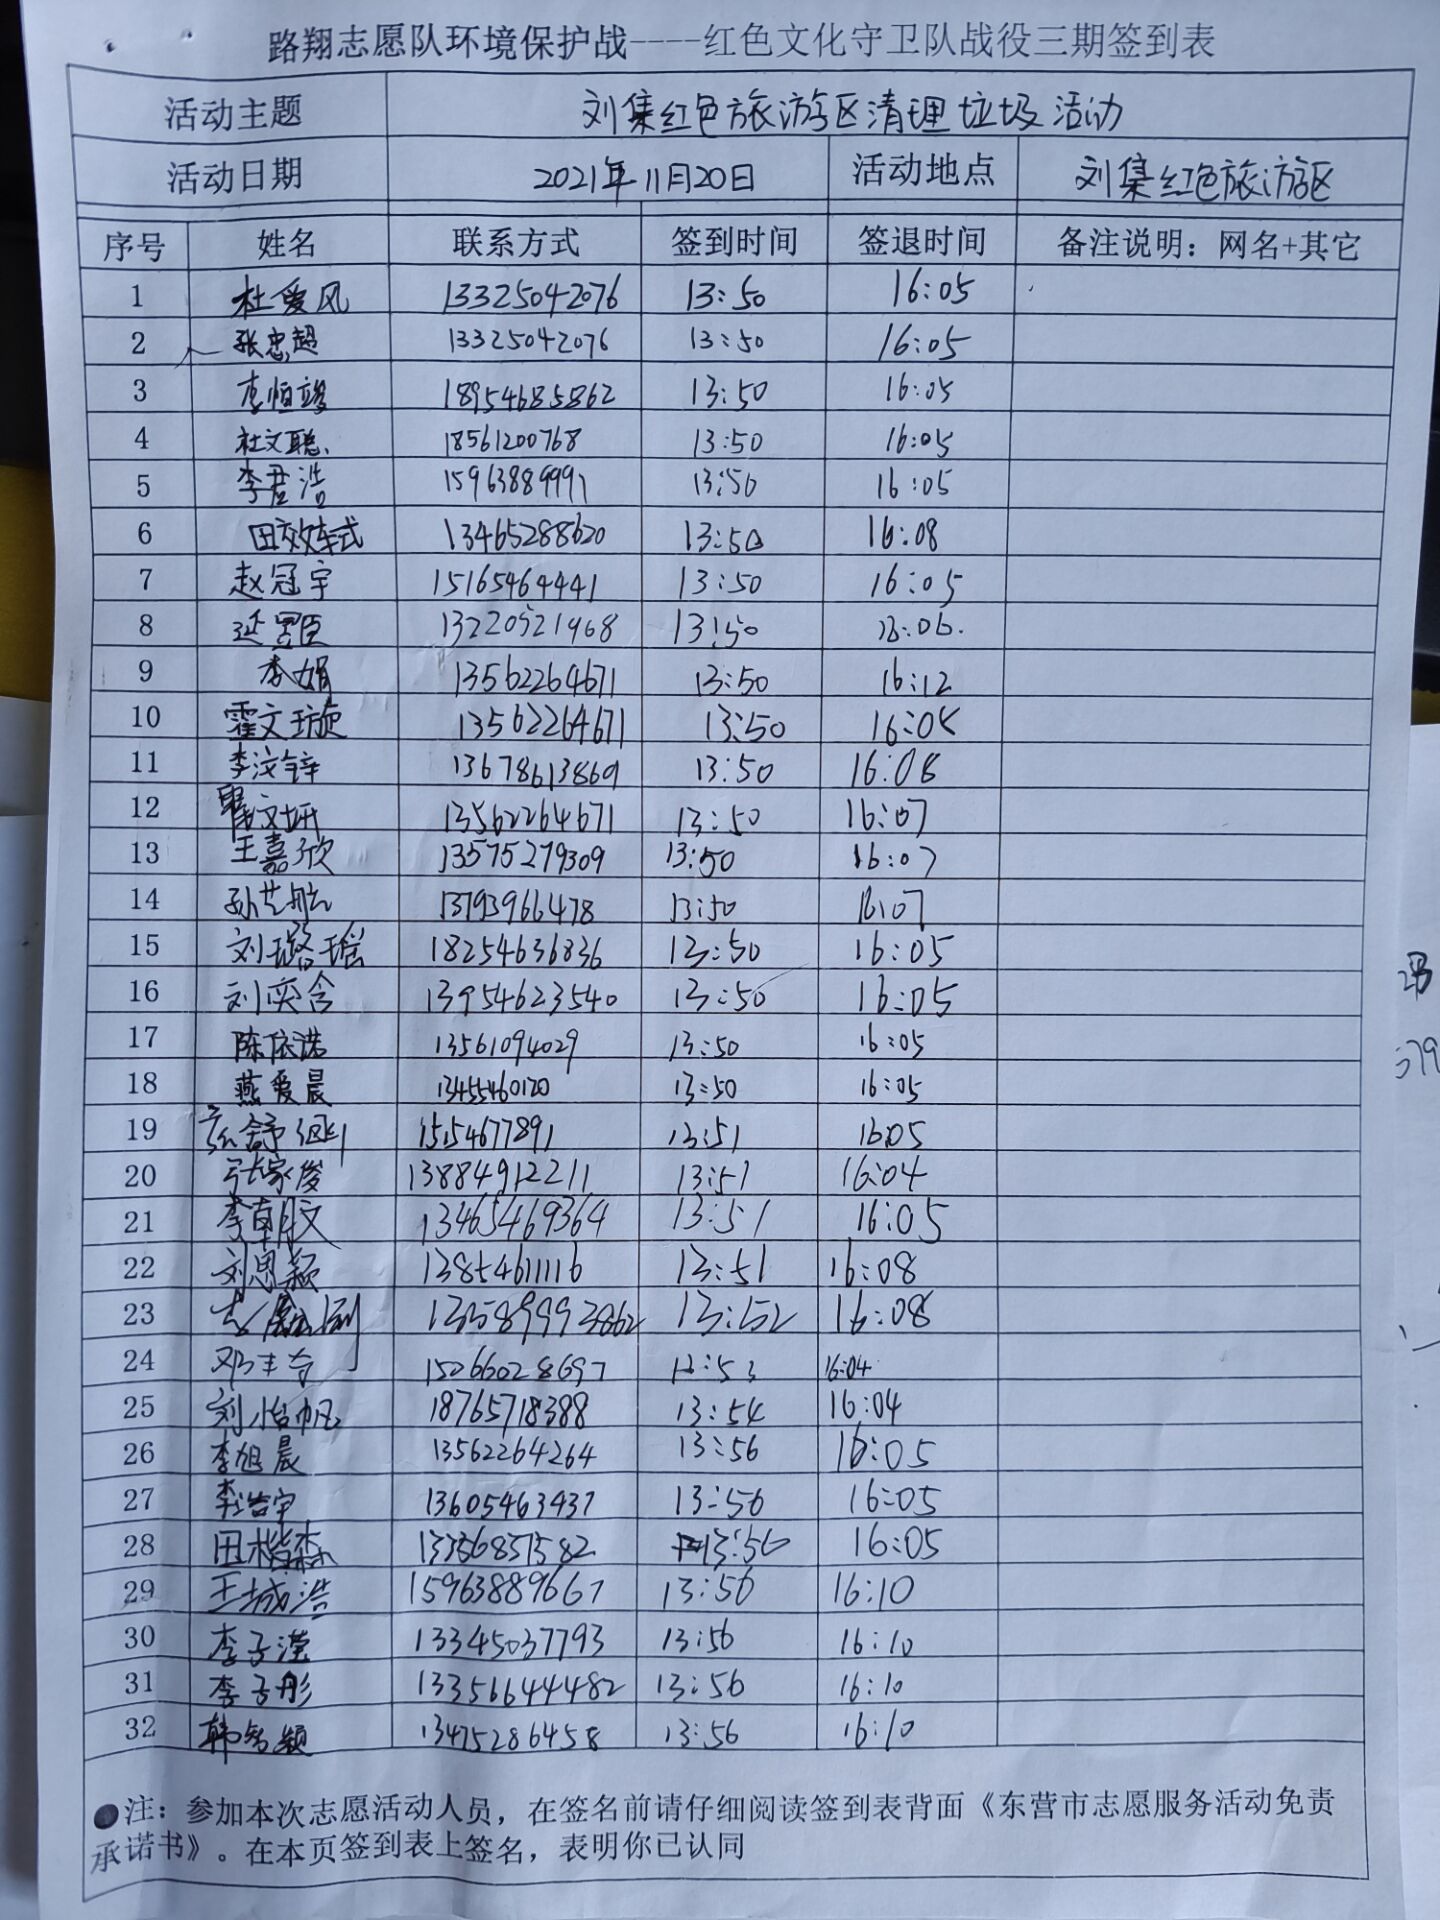 路翔志愿队环境保护战----红色文化守卫队战役三期签到表
活动主题 刘集红色旅游区清理垃圾活动
活动日期 2021年11月20日 活动地点 刘集红色旅游区
序号 姓名 联系方式 签到时间 签退时间 备注说明：网名+其它
1 杜爱风 13325042076 13:50 16:05
2 张忠超 13325042076 13:50 16:05
3 18954685862 13:50 16:05
4 杜文聪 18561200768 13:50 16:05
5 李君浩 15963889991 13:50 16:05
6 13465288620 13:50 16:08
7 赵冠宇 15165464441 13:50 16:05
8 13220521968 13:50
9 李娟 13562264671 13:50 16:12
10 霍文璇 13562264671 13:50 16:05
11 李汶锌 13678613869 13:50 16:08
12 13562264671 13:50 16:07
13 王嘉欣 13575279309 13:50 16:07
14 孙艺航 13793966478 13:50 16:07
15 刘璐瑶 18254636836 13:50 16:05
16 刘奕含 13954623540 13:50 16:05
17 陈依诺 13561094029 13:50 16:05
18 燕爱晨 13455460120 13:50 16:05
19 15154677891 13:51 16:05
20 张家俊 13884912211 13:51 16:04
21 李朝文 13465469364 13:51 16:05
22 刘思颖 13854611116 13:51 16:08
23 13:52 16:08
24 15266028697 13:53 16:04
25 刘怡帆 18765718388 13:54 16:04
26 李旭晨 13562264264 13:56 16:05
27 李浩宇 13605463437 13:56 16:05
28 田楷森 13356857582 13:56 16:05
29 王城浩 15963889667 13:56 16:10
30 李子滢 13345037793 13:56 16:10
31 李子彤 13356644482 13:56 16:10
32 韩智颖 13475286458 13:56 16:10
●注：参加本次志愿活动人员，在签名前请仔细阅读签到表背面《东营市志愿服务活动免责
承诺书》。在本页签到表上签名，表明你已认同